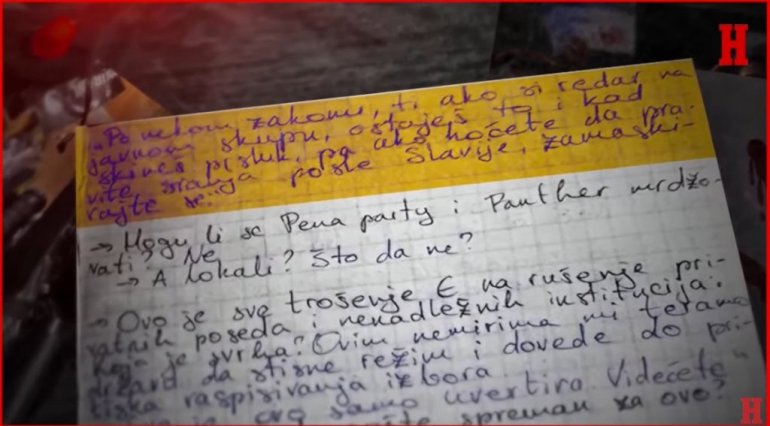 „Po nekom zakonu, ti ako si redar na
javnom skupu, ostaješ to i kad
skineš prsluk, pa ako hoćete da pra-
vite sranja posle Slavije, zamaski-
rajte se."
→ Mogu li se Pena party i Panther mrdžo-
vati? Ne
→ A lokali? Što da ne?
→ Ovo je sve trošenje € na rušenje pri-
vatnih poseda i nenadležnih institucija.
Koja je svrha? Ovim nemirima mi teramo
državu da stisne režim i dovede do pri-
tiska raspisivanja izbora
ovo samo uvertira. Videćete
spreman za ovo?
H
H